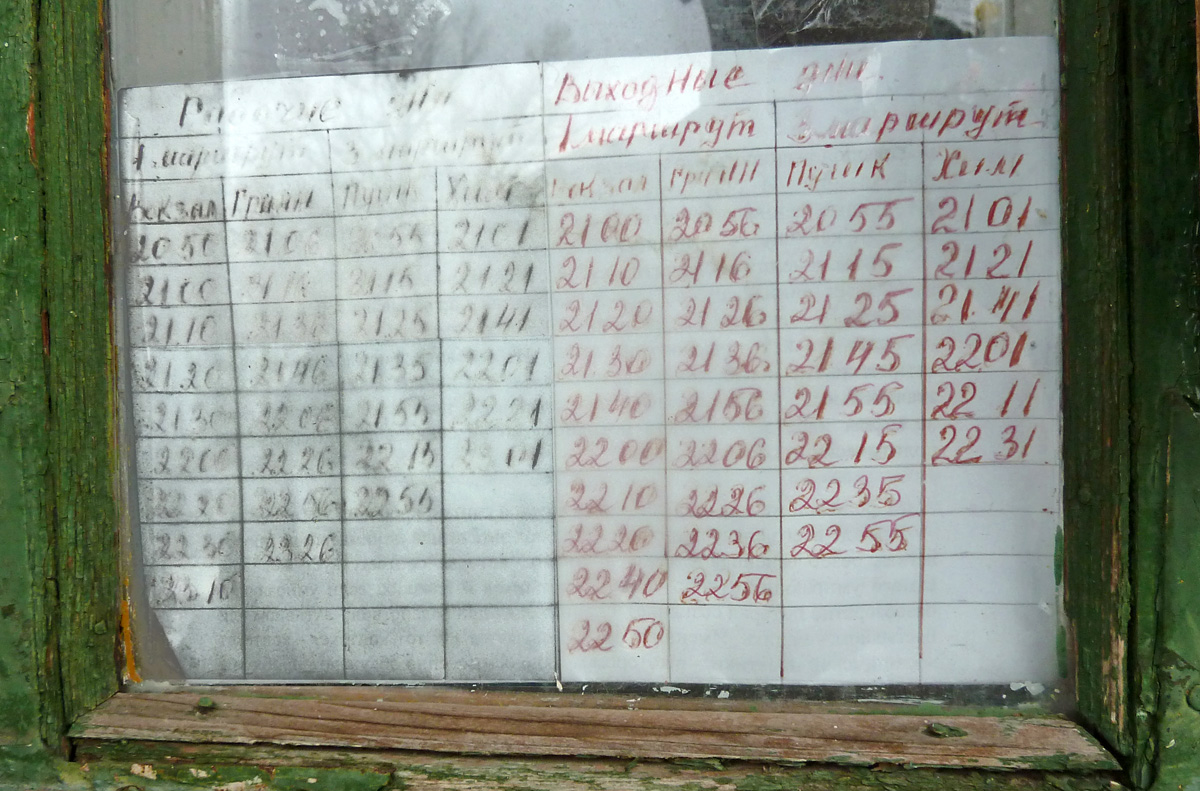 Рабочие дни Выходные дни
1 маршрут 3 маршрут 1 маршрут 3 маршрут
Вокзал Гриин Пушк Хим Вокзал Гриин Пушк Хим
20 50 21 06 20 55 21 01 21 00 20 56 20 55 21 01
21 00 21 15 21 21 21 10 21 16 21 15 21 21
21 10 21 25 21 41 21 20 21 26 21 25 21 41
21 20 21 46 21 35 22 01 21 30 21 36 21 45 22 01
21 30 22 06 21 55 22 21 21 40 21 56 21 55 22 11
22 00 22 26 22 15 22 00 22 06 22 15 22 31
22 20 22 56 22 55 22 10 22 26 22 35
23 26 22 20 22 36 22 55
22 40 22 56
22 50